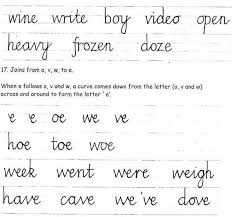 wine write boy video open
heavy frozen doze
17. Joins from o, v, w, to e.
When e follows o, v and w, a curve comes down from the letter (o, v and w)
across and around to form the letter ' e'.
e e oe we ve
hoe toe woe
week went were weigh
have cave we've dove